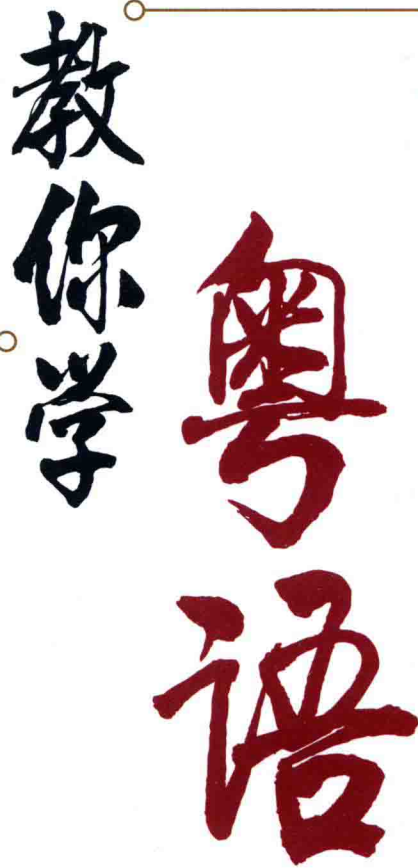 教你学
粤语